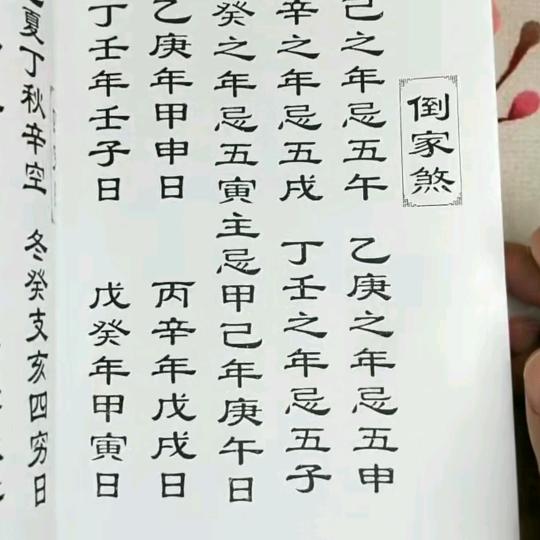 倒家煞
己之年忌五午　乙庚之年忌五申
辛之年忌五戌　丁壬之年忌五子
癸之年忌五寅主忌甲己年庚午日
乙庚年甲申日　丙辛年戊戌日
丁壬年壬子日　戊癸年甲寅日
夏丁秋辛空　冬癸支亥四穷日